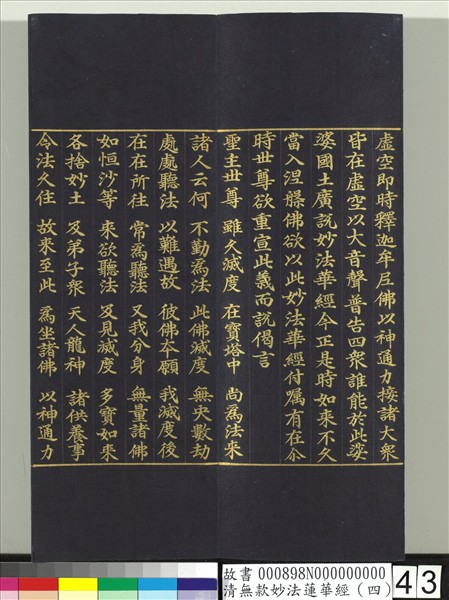 虛空即時釋迦牟尼佛以神通力接諸大衆
皆在虛空以大音聲普告四衆誰能於此娑
婆國土廣說妙法華經今正是時如來不久
當入涅槃佛欲以此妙法華經付囑有在尒
時世尊欲重宣此義而說偈言
聖主世尊 雖久滅度 在寶塔中 尚爲法來
諸人云何 不勤爲法 此佛滅度 無央數劫
處處聽法 以難遇故 彼佛本願 我滅度後
在在所往 常爲聽法 又我分身 無量諸佛
如恒沙等 來欲聽法 及見滅度 多寶如來
各捨妙土 及弟子衆 天人龍神 諸供養事
令法久住 故來至此 爲坐諸佛 以神通力
故書 000898N000000000
清無款妙法蓮華經(四)
43